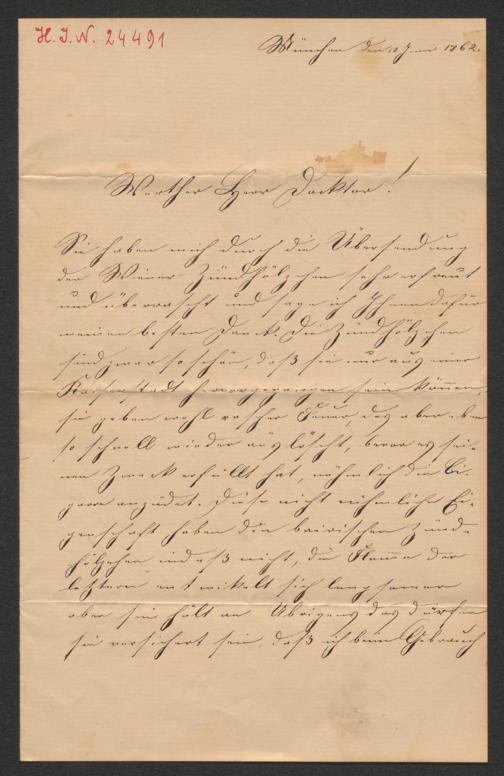 H. I. N. 24491
München den 10 Juni 1862.
Werther Herr Docktor!
Sie haben mich durch die Übersendung
der Wiener Zündhölzchen sehr erfreut
und überrascht und sage ich Ihnen dafür
meinen besten Dank. Die Zündhölzchen
sind zwar so schön, daß sie nur aus einer
Kaiserstadt hervorgegangen sein können,
sie geben wohl rascher Feuer, das aber eben
so schnell wieder auslöscht, bevor es sei-
nen Zweck erfüllt hat, nähmlich die Ci-
garre anzündet. Diese nicht rühmliche Ei-
genschaft haben die bairischen Zünd-
hölzchen indeß nicht, die Flamme der
letztern entwikelt sich langsamer
aber sie hält an. Übrigens das dürfen
sie versichert sein, daß ich beim Gebrauch